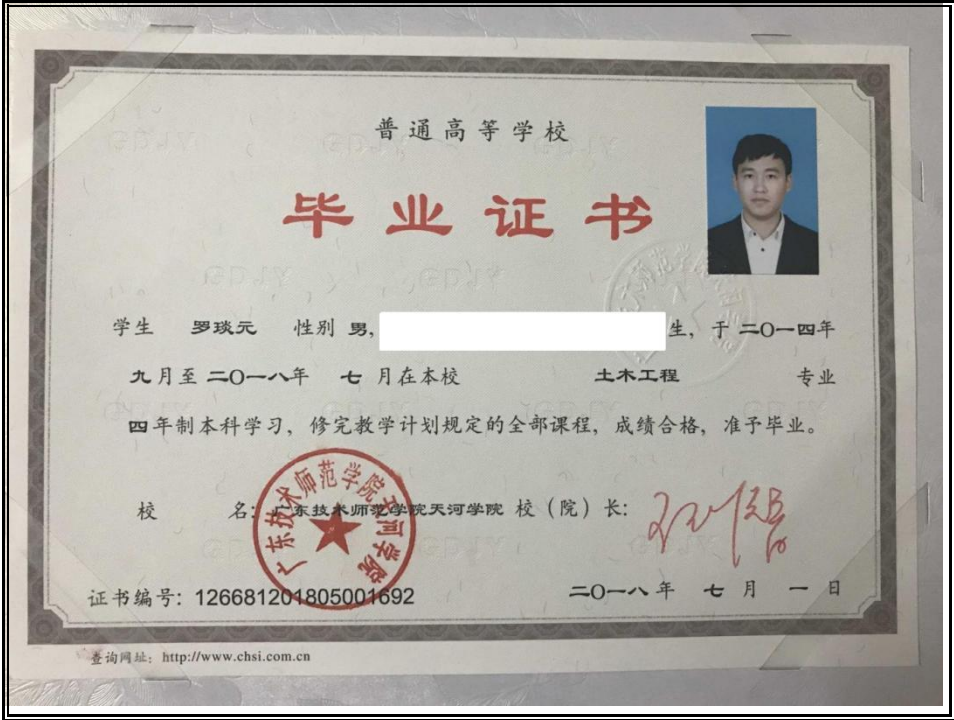 普通高等学校
毕业证书
学生 罗琰元 性别 男, 生, 于 二〇一四年
九月至二〇一八年 七 月在本校 土木工程 专业
四年制本科学习, 修完教学计划规定的全部课程, 成绩合格, 准予毕业。
校 名: 广东技术师范学院天河学院 校(院)长:
广东技术师范学院天河学院
证书编号: 126681201805001692 二〇一八年 七 月 一 日
查询网址: http://www.chsi.com.cn